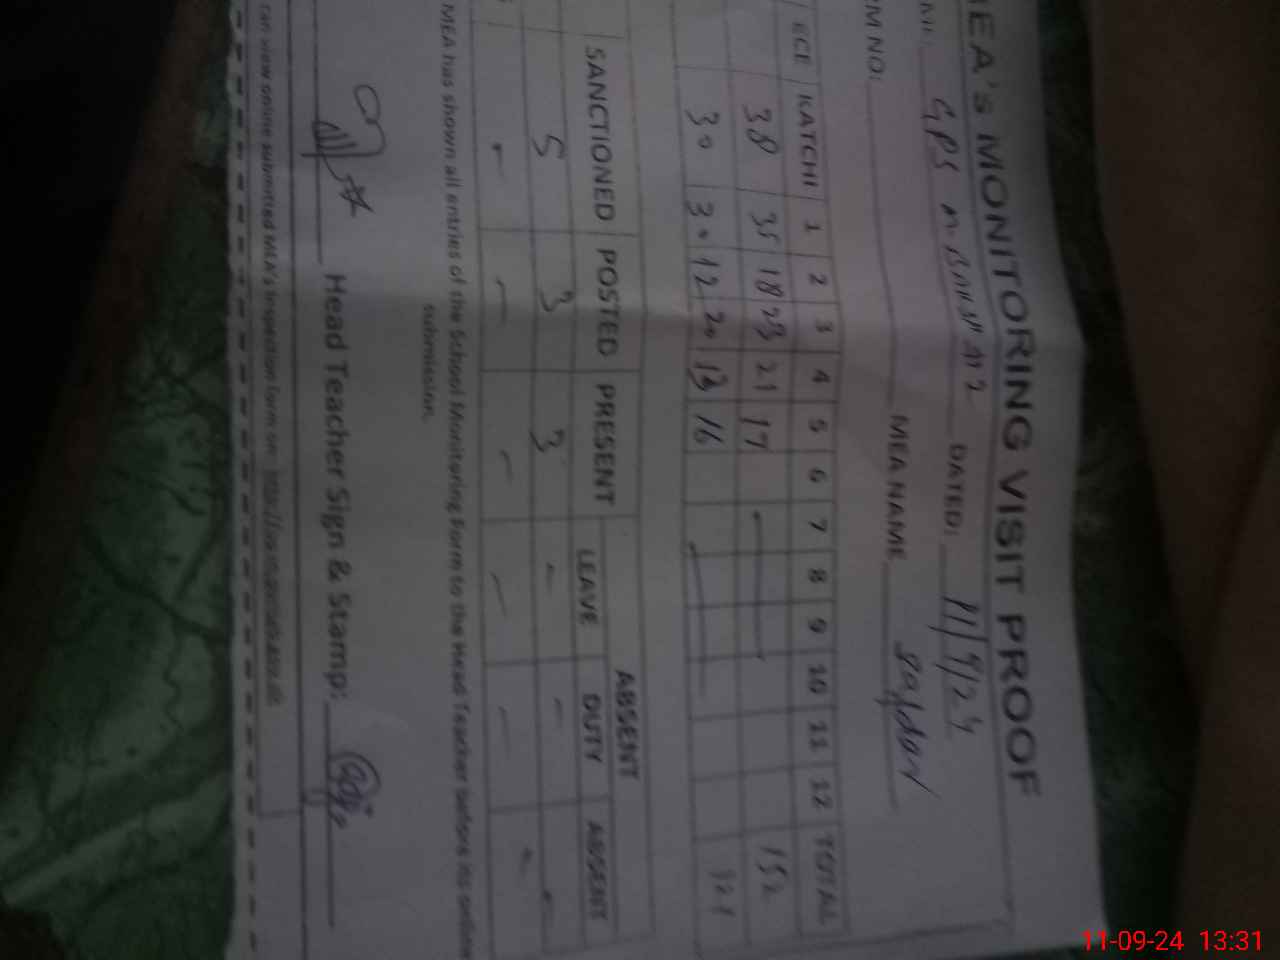 MEA's MONITORING VISIT PROOF
GPS DATED: 11/9/24
RM NO: MEA NAME
ECE KATCHI 1 2 3 4 5 6 7 8 9 10 11 12 TOTAL
38 35 18 23 21 17 152
30 30 12 20 13 16 121
ABSENT
SANCTIONED POSTED PRESENT LEAVE DUTY ABSENT
5 3 3 - - -
- - - - - -
MEA has shown all entries of the School Monitoring Form to the Head Teacher before his online
submission.
Head Teacher Sign & Stamp:
can view online submitted MEA's Inspection form on
11-09-24 13:31